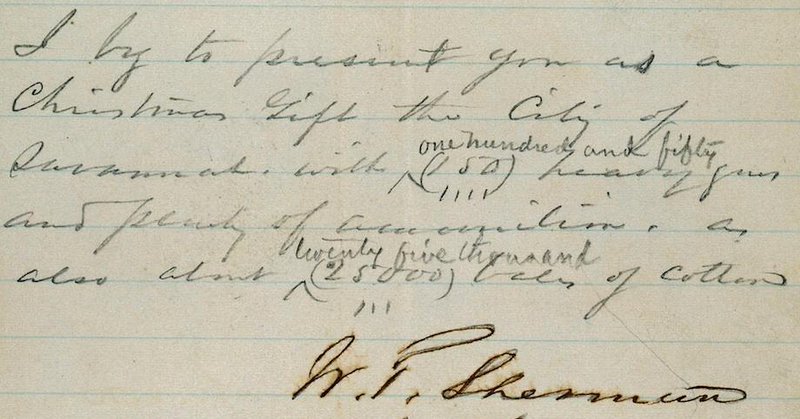 I beg to present you as a
Christmas Gift the City of
Savannah. with one hundred and fifty (150) heavy guns
and plenty of ammunition. as
also about twenty five thousand (25000) bales of cotton
W. T. Sherman